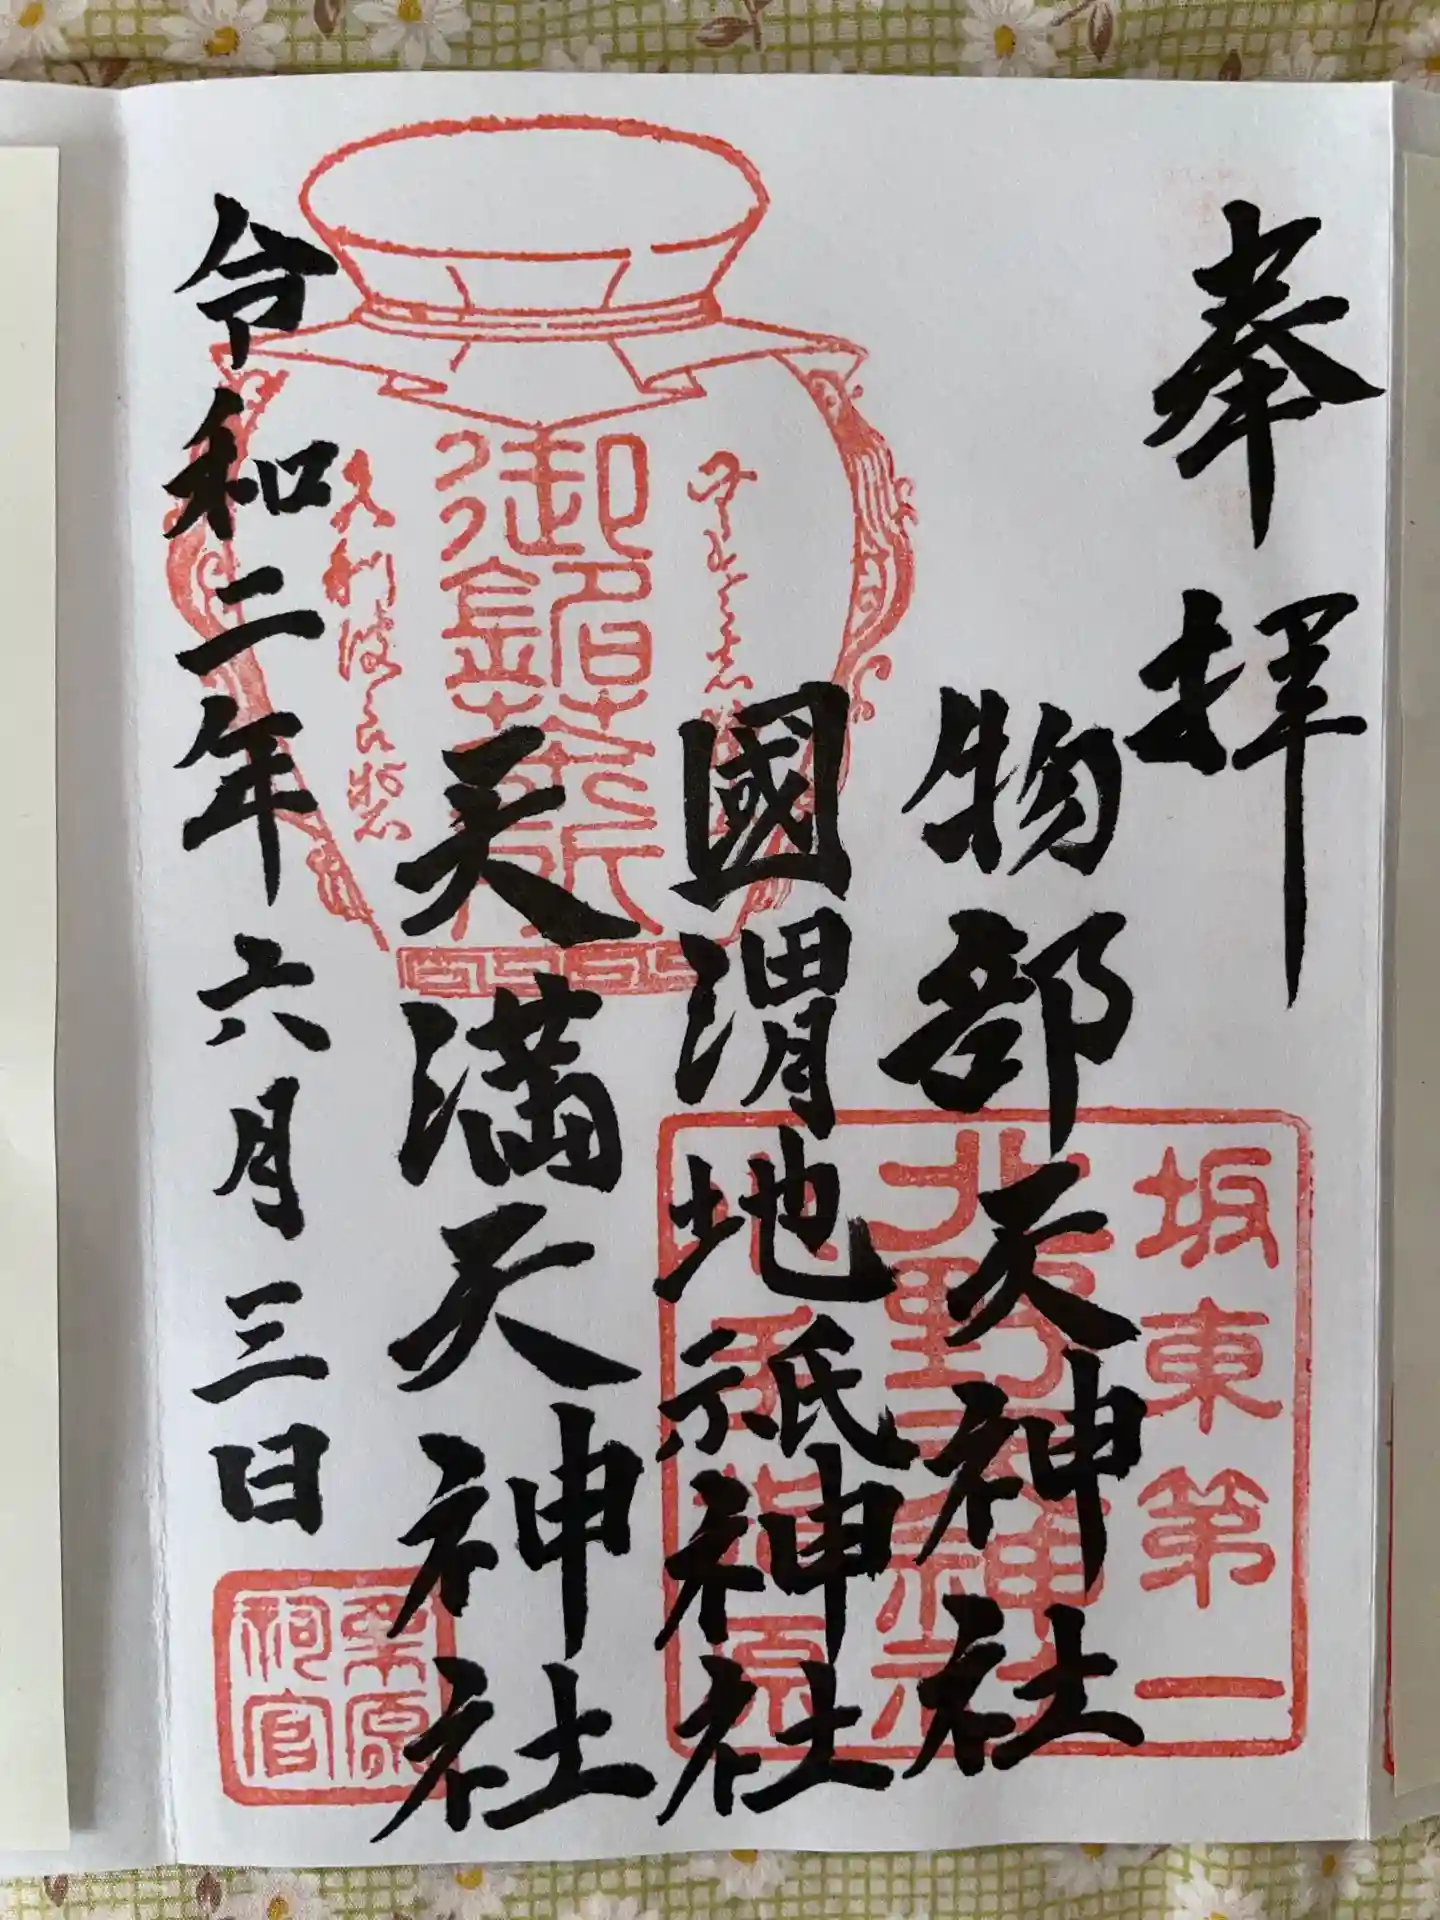 奉拝
物部天神社
國渭地祇神社
天満天神社
令和二年六月三日
坂東第一
北野天神社
御詔葊所
栗原
祠官